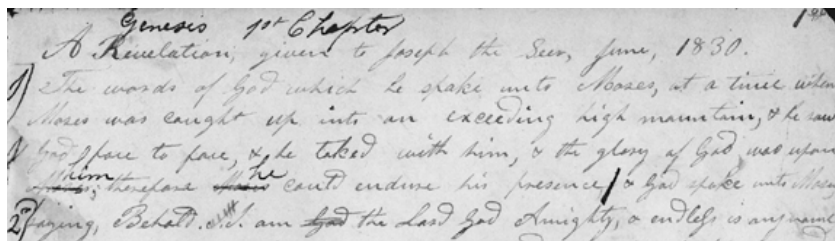 Genesis 1st Chapter
A Revelation, given to Joseph the Seer, June, 1830.
1) The words of God which he spake unto Moses, at a time when
Moses was caught up into an exceeding high mountain, & he saw
God face to face, & he talked with him, & the glory of God was upon
him; therefore he could endure his presence / & God spake unto Moses
2) saying, Behold I am God the Lord God Almighty, & endless is my name